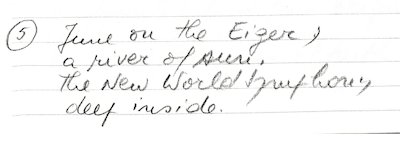 ⑤ June on the Eiger,
a river of sun.
The New World Symphony
deep inside.